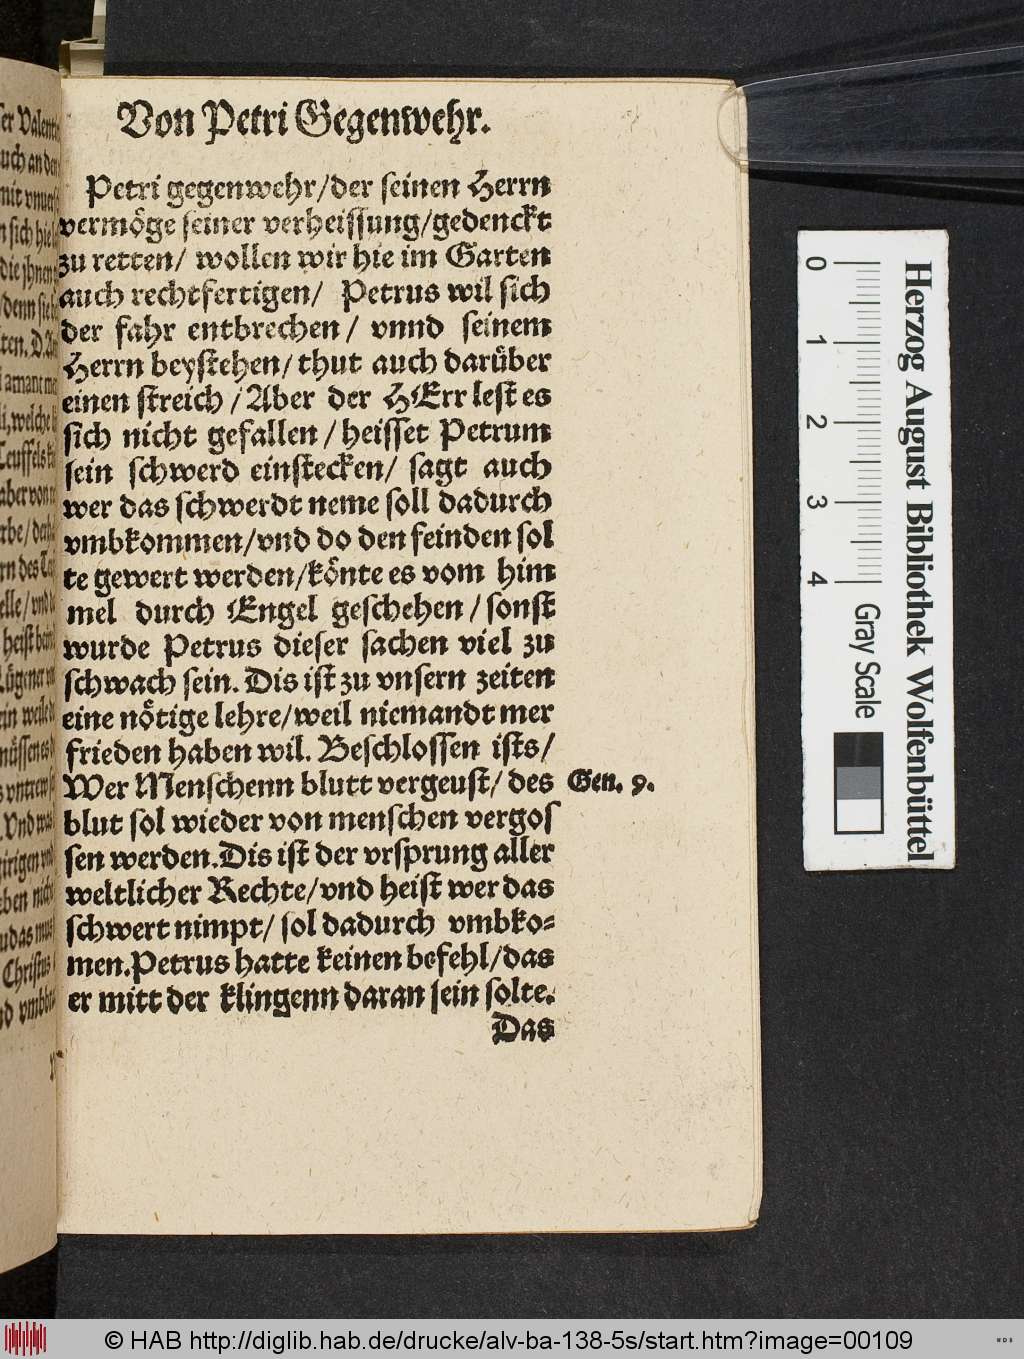 Von Petri Gegenwehr.
Petri gegenwehr/der seinen Herrn
vermöge seiner verheissung/gedenckt
zu retten/ wollen wir hie im Garten
auch rechtfertigen/ Petrus wil sich
der fahr entbrechen/ vnnd seinem
Herrn beystehen/ thut auch darüber
einen streich / Aber der HErr lest es
sich nicht gefallen / heisset Petrum
sein schwerd einstecken/ sagt auch
wer das schwerdt neme soll dadurch
vmbkommen/vnd do den feinden sol
te gewert werden/könte es vom him
mel durch Engel geschehen / sonst
wurde Petrus dieser sachen viel zu
schwach sein. Dis ist zu vnsern zeiten
eine nötige lehre/weil niemandt mer
frieden haben wil. Beschlossen ists/
Wer Menschenn blutt vergeust/ des
Gen. 9.
blut sol wieder von menschen vergos
sen werden. Dis ist der vrsprung aller
weltlicher Rechte/vnd heist wer das
schwert nimpt/ sol dadurch vmbko=
men. Petrus hatte keinen befehl/das
er mitt der klingenn daran sein solte.
Das
0 1 2 3 4
Gray Scale
Herzog August Bibliothek Wolfenbüttel
© HAB http://diglib.hab.de/drucke/alv-ba-138-5s/start.htm?image=00109